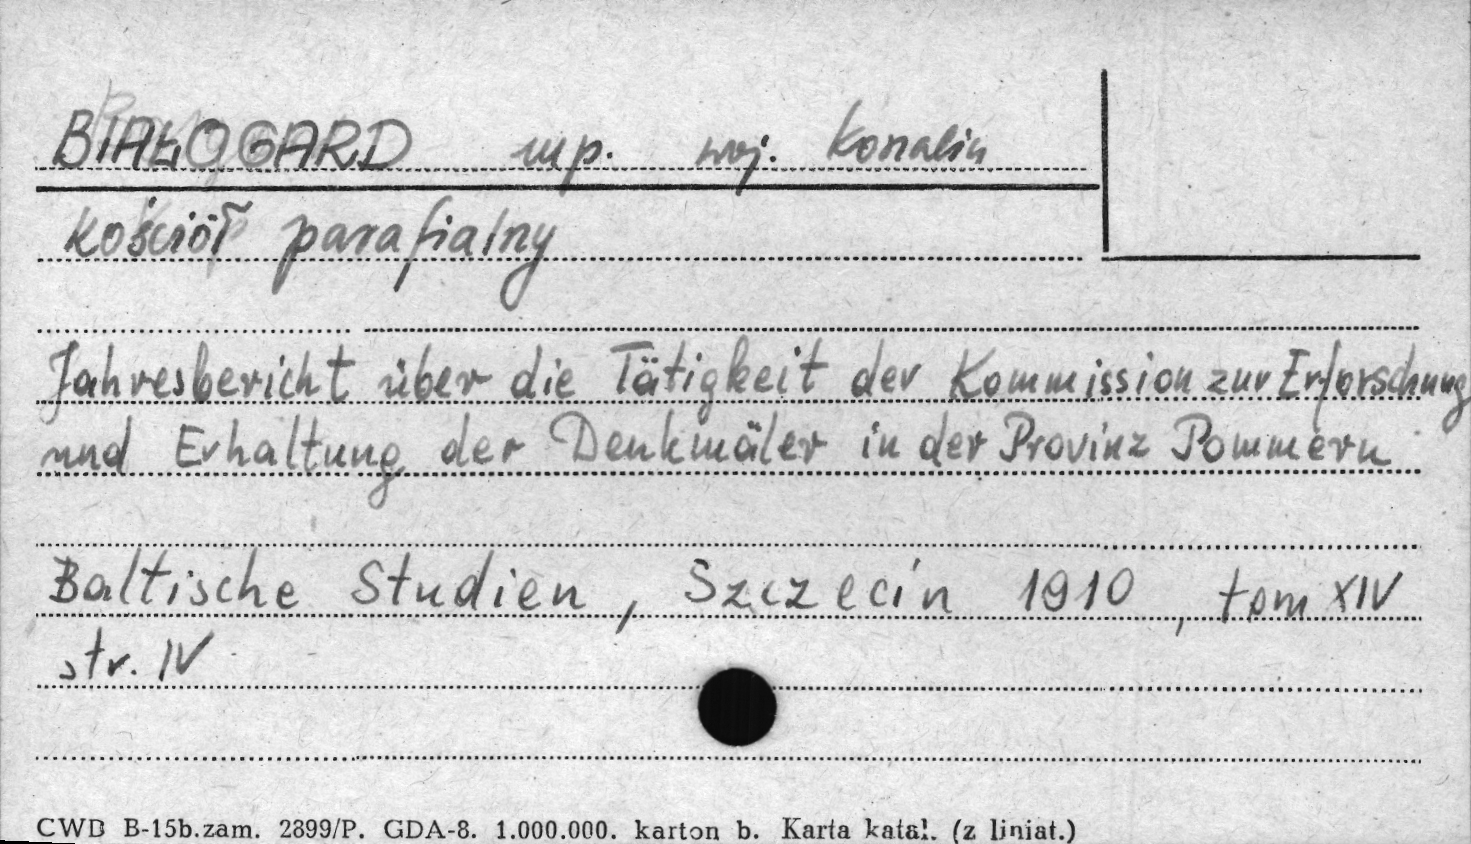 BIAŁOGARD mp. woj. Koszalin
Kościół parafialny
Jahresbericht über die Tätigkeit der Kommission zur Erforschung
und Erhaltung der Denkmäler in der Provinz Pommern
Baltische Studien, Szczecin 1910, tom XIV
str. IV
CWD B-15b.zam. 2899/P. GDA-8. 1.000.000. karton b. Karta katal. (z liniat.)